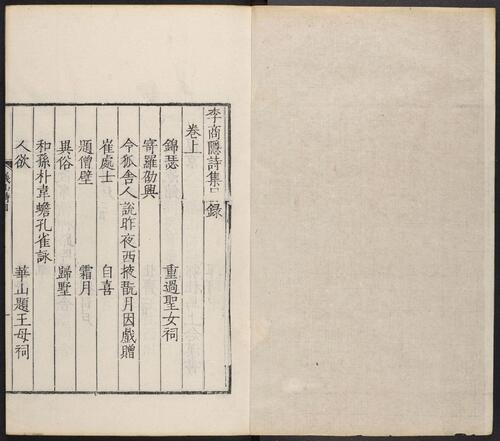 李商隱詩集目錄
卷上
錦瑟 重過聖女祠
寄羅劭興
令狐舍人說昨夜西掖翫月因戲贈
崔處士 自喜
題僧壁 霜月
異俗 歸墅
和孫朴韋蟾孔雀詠
人欲 華山題王母祠